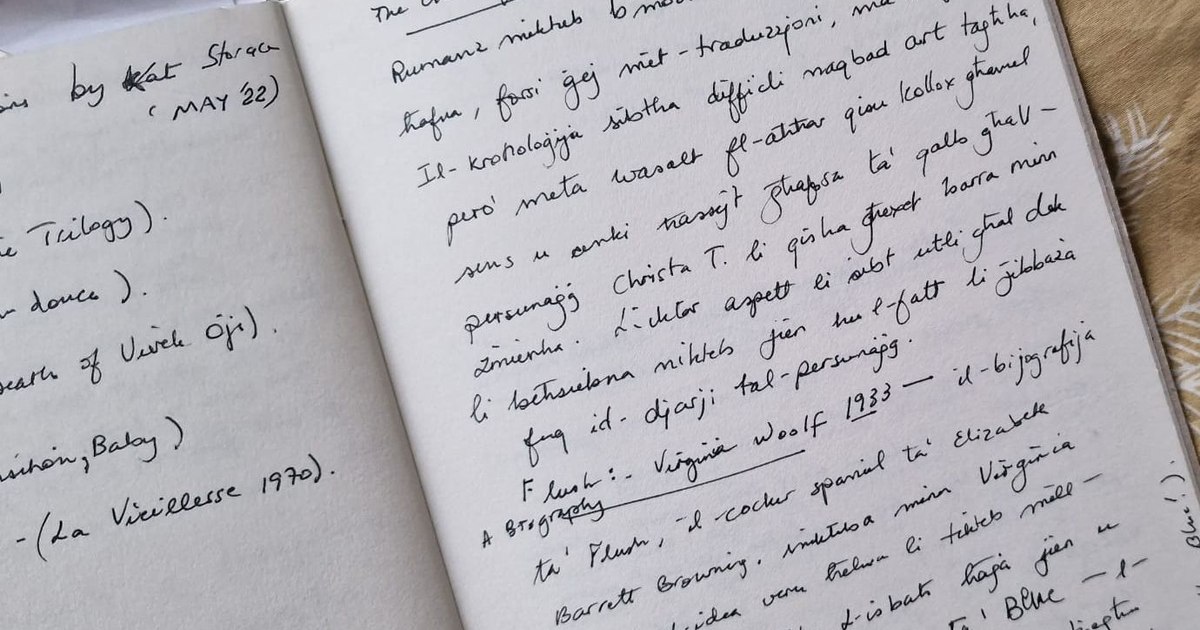 by Kat Storace
(MAY '22)
Trilogy).
douce).
Death of Vivek Oji).
Baby)
- (La Vieillesse 1970).
The
Rumanz mikteb b'mod
ħafna, forsi ġej mit-traduzzjoni, ma
Il-kronoloġija sibtha diffiċli naqbad art tagħha,
però meta wasalt fl-aħħar qisu kollox għamel
sens u anki ħassejt għafsa ta' qalb għall-
persunaġġ Christa T. li qisha għexet barra minn
żmienha. L-iktar aspett li sibt utli għal dak
li beħsiebna nikteb jien hu l-fatt li jibbaża
fuq id-djarji tal-persunaġġ.
Flush:- Virginia Woolf 1933 — il-bijografija
A Biography
ta' Flush, il-cocker spaniel ta' Elizabeth
Barrett Browning, miktuba minn Virginia
idea vera ħelwa li tikteb mill-
L-isbaħ ħaġa jien u
ta' Blue — l-
Blue!).